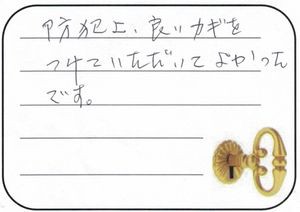 防犯上、良いカギを
つけていただいてよかった
です。